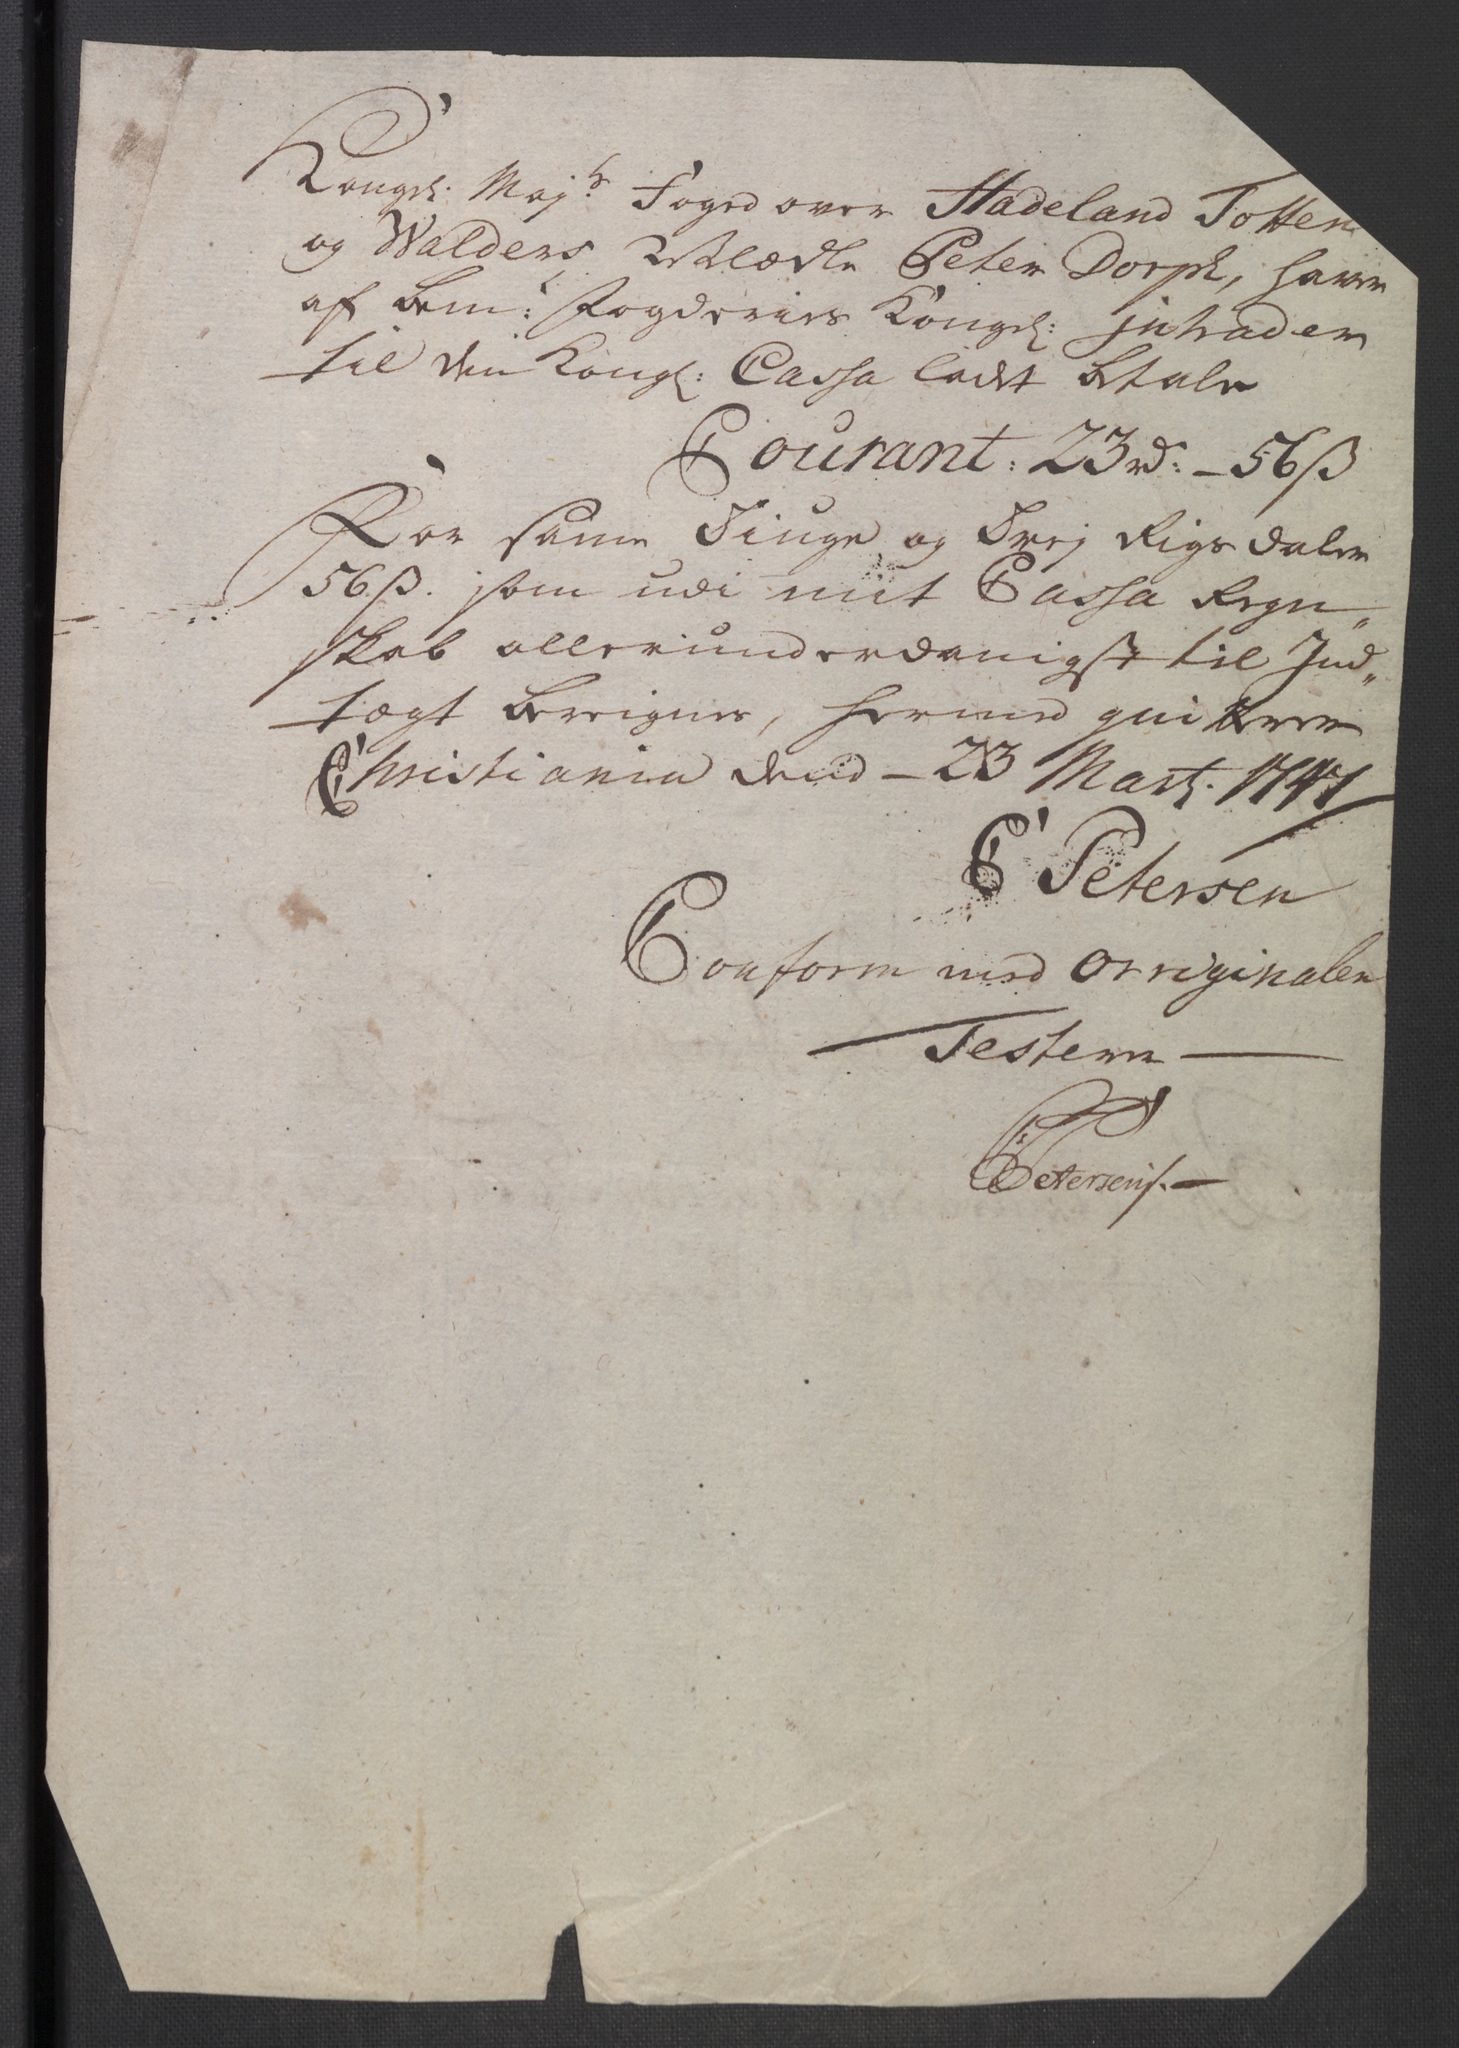 Kongel: Mayts Foged over Hadeland Totten
og Walders, Velædle Peter Dorph, haver
af bem:te Fogderies Kongel: jntrader
til den Kongl: Cassa ladet betale
Courant: 23rd: – 56ß
For same Tiuge og Trej Rigsdaler
56ß. som udi mit Cassa Regn„
skab allerunderdanigst til Ind„
tægt bereignes, hermed qvitterer
Christiania dend – 23 Marti. 1747
C Petersen
Conform med Orriginalen
Testerer
Petersen